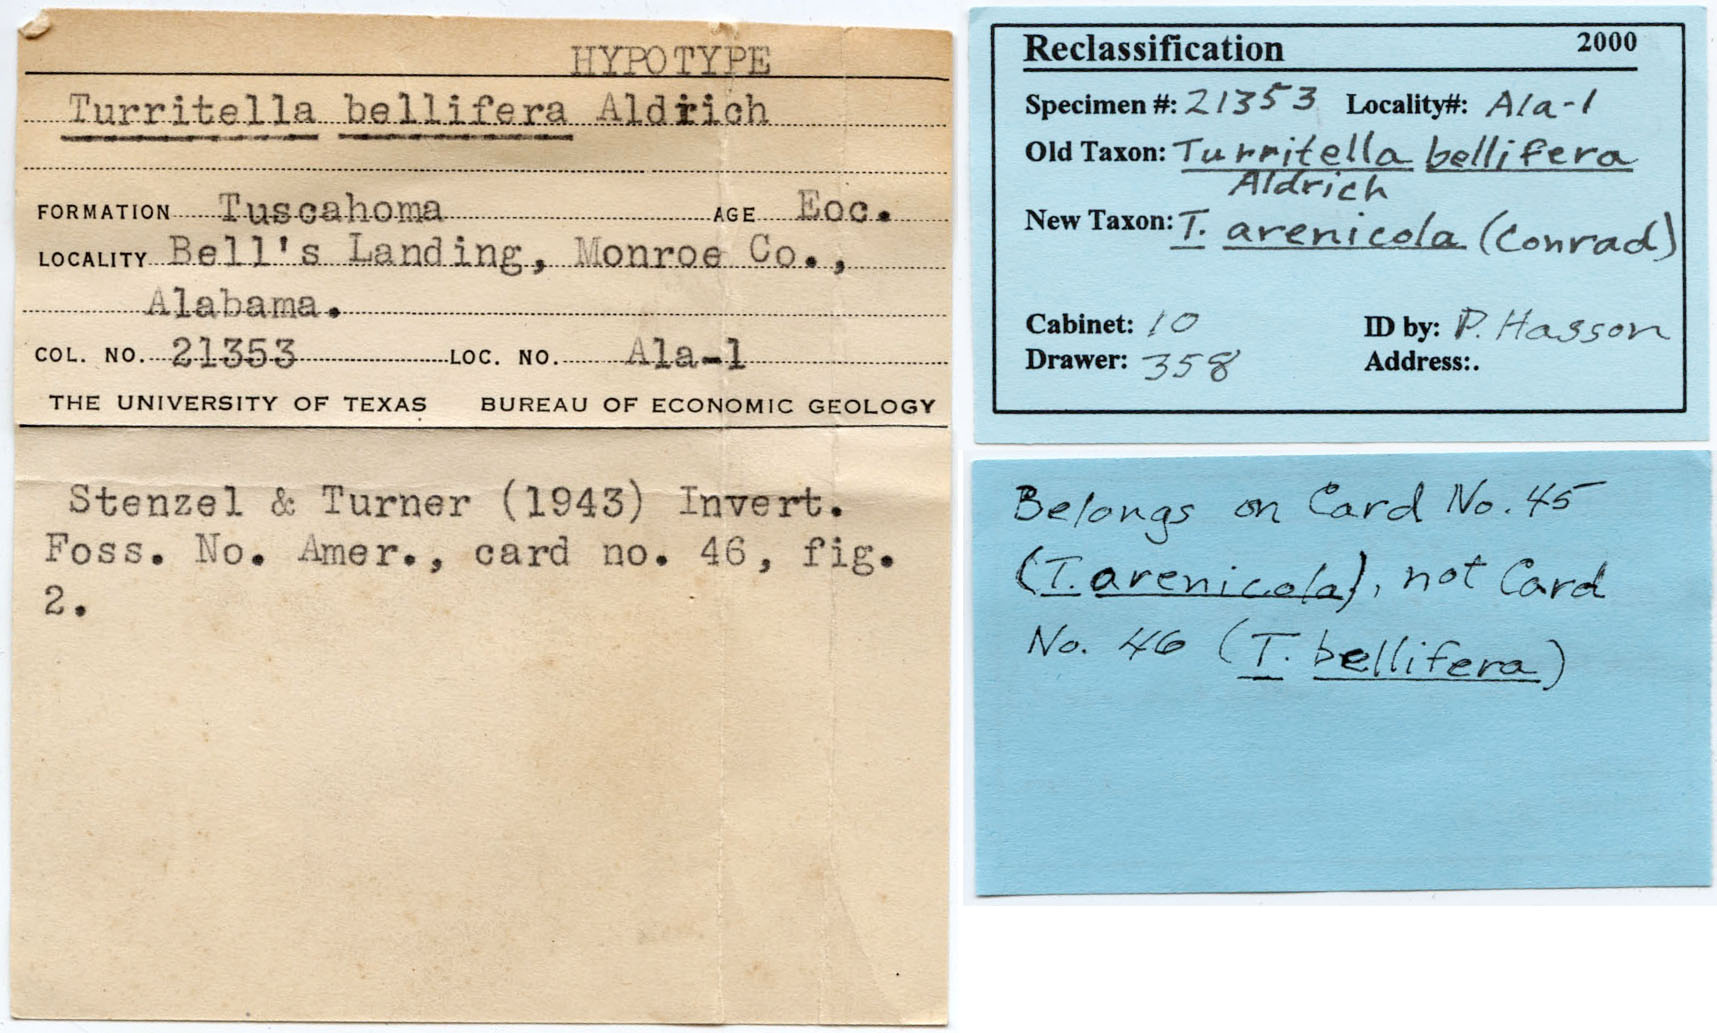 HYPOTYPE
Turritella bellifera Aldrich
FORMATION Tuscahoma AGE Eoc.
LOCALITY Bell's Landing, Monroe Co.,
Alabama.
COL. NO. 21353 LOC. NO. Ala-1
THE UNIVERSITY OF TEXAS BUREAU OF ECONOMIC GEOLOGY
Stenzel & Turner (1943) Invert.
Foss. No. Amer., card no. 46, fig.
2.
Reclassification 2000
Specimen #: 21353 Locality#: Ala-1
Old Taxon: Turritella bellifera
Aldrich
New Taxon: T. arenicola (Conrad)
Cabinet: 10 ID by: P. Hasson
Drawer: 358 Address:.
Belongs on Card No. 45
(T. arenicola), not Card
No. 46 (T. bellifera)